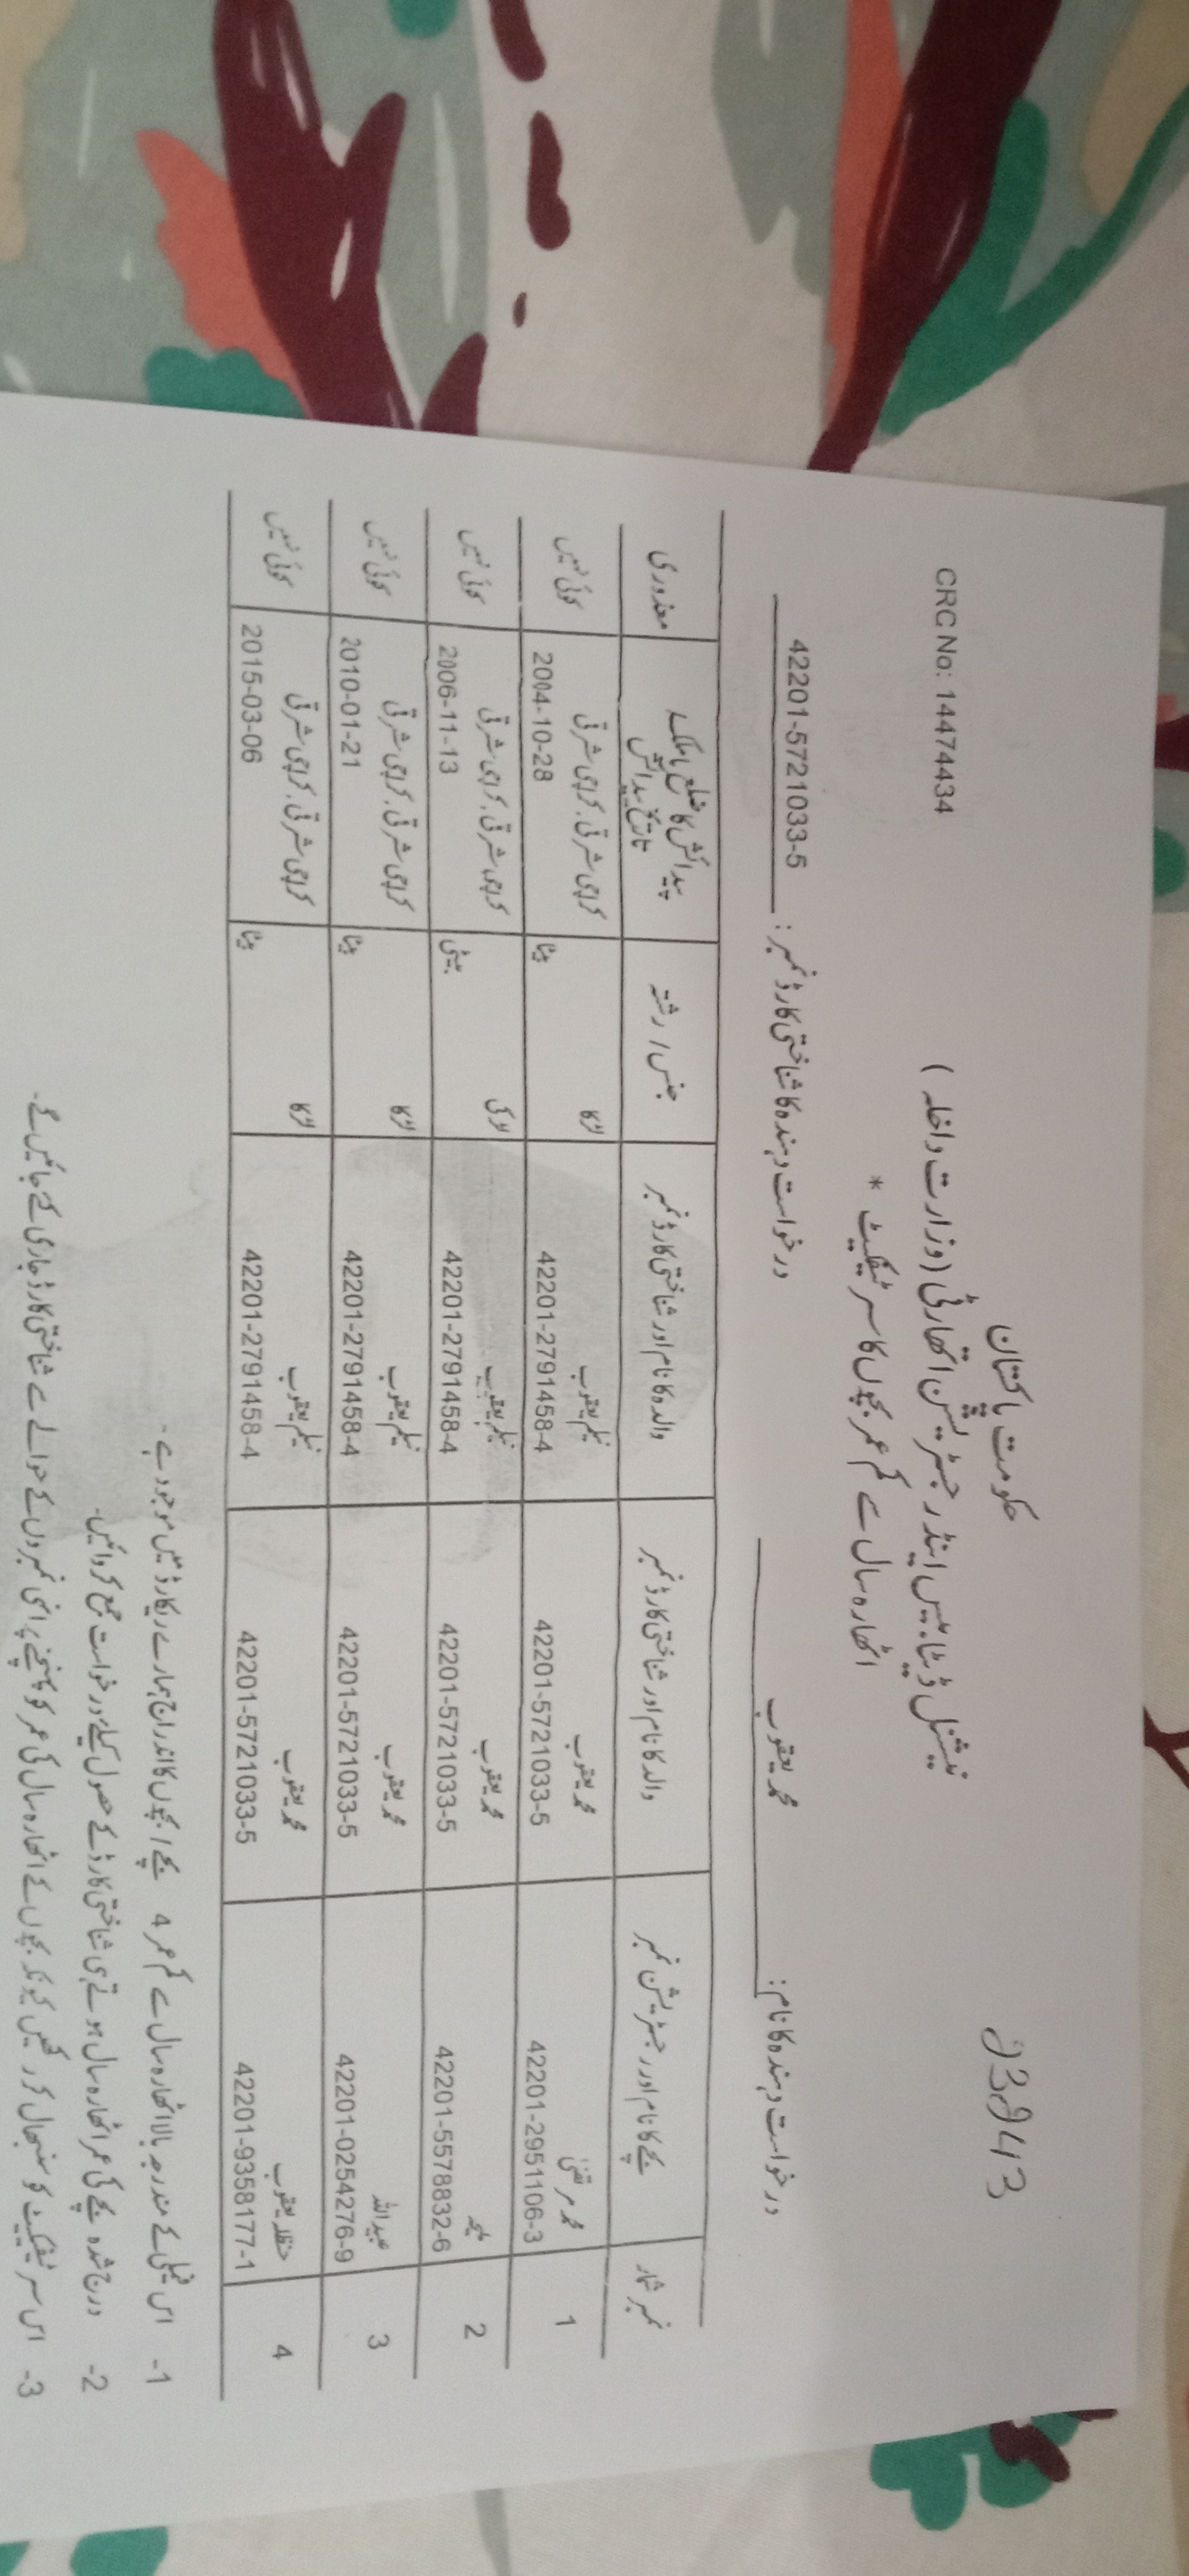 حکومت پاکستان
نیشنل ڈیٹابیس اینڈ رجسٹریشن اتھارٹی (وزارت داخلہ)
CRC No: 14474434
اٹھارہ سال سے کم عمر بچوں کا سرٹیفکیٹ *
درخواست دہندہ کا نام: محمد یعقوب درخواست دہندہ کا شناختی کارڈ نمبر: 42201-5721033-5
نمبر شمار بچے کا نام اور رجسٹریشن نمبر والد کا نام اور شناختی کارڈ نمبر والدہ کا نام اور شناختی کارڈ نمبر جنس / رشتہ پیدائش کا ضلع / ملک تاریخ پیدائش معذوری
1 محمد مرتضیٰ 42201-2951106-3 محمد یعقوب 42201-5721033-5 نیلم یعقوب 42201-2791458-4 لڑکا بیٹا کراچی شرقی، کراچی شرقی 2004-10-28 کوئی نہیں
2 42201-5578832-6 محمد یعقوب 42201-5721033-5 نیلم یعقوب 42201-2791458-4 لڑکی بیٹی کراچی شرقی، کراچی شرقی 2006-11-13 کوئی نہیں
3 عبیداللہ 42201-0254276-9 محمد یعقوب 42201-5721033-5 نیلم یعقوب 42201-2791458-4 لڑکا بیٹا کراچی شرقی، کراچی شرقی 2010-01-21 کوئی نہیں
4 حنظلہ یعقوب 42201-9358177-1 محمد یعقوب 42201-5721033-5 نیلم یعقوب 42201-2791458-4 لڑکا بیٹا کراچی شرقی، کراچی شرقی 2015-03-06 کوئی نہیں
1- اس فیملی کے مندرجہ بالا اٹھارہ سال سے کم عمر 4 بچے / بچوں کا اندراج ہمارے ریکارڈ میں موجود ہے۔
2- درج شدہ بچے کی عمر اٹھارہ سال ہوتے ہی شناختی کارڈ کے حصول کیلئے درخواست جمع کروائیں۔
3- اس سرٹیفکیٹ کو سنبھال کر رکھیں کیونکہ بچوں کے اٹھارہ سال کی عمر کو پہنچنے پر انہی نمبروں کے حوالے سے شناختی کارڈ جاری کئے جائیں گے۔